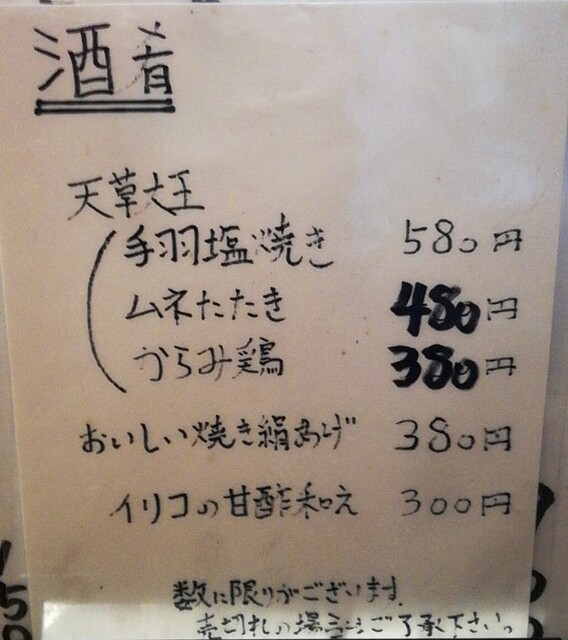 酒肴
天草大王
手羽塩焼き 580円
ムネたたき 480円
からみ鶏 380円
おいしい焼き絹あげ 380円
イリコの甘酢和え 300円
数に限りがございます。
売切れの場合はご了承下さい。